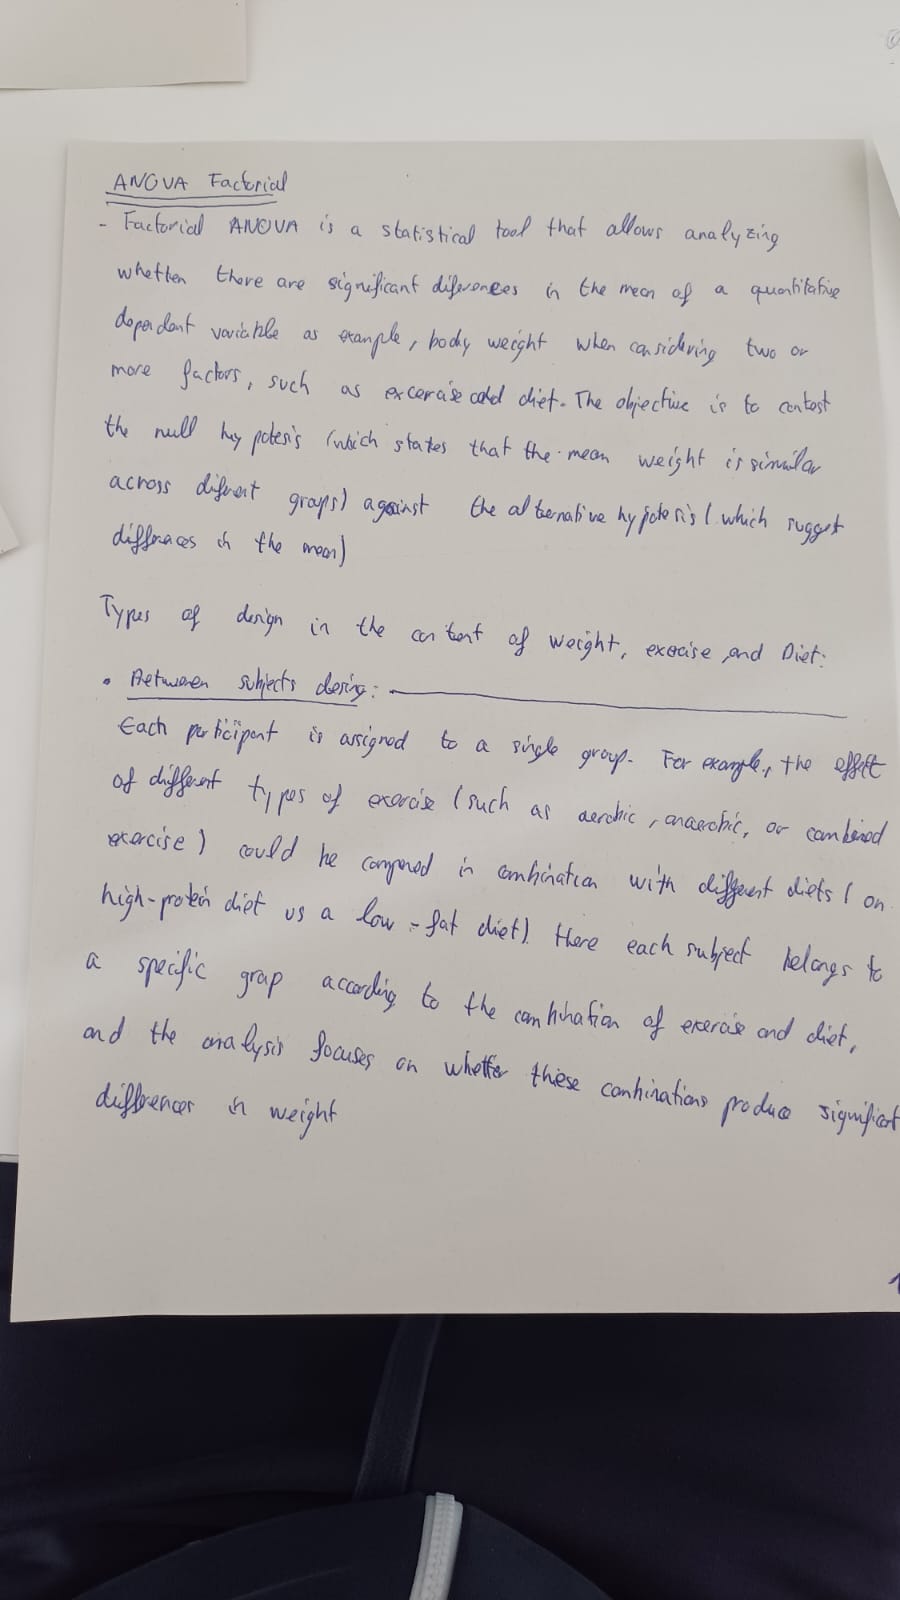 ANOVA Factorial
- Factorial ANOVA is a statistical tool that allows analyzing
whetten there are significant diferences in the mean of a quantitative
dependant variable as example, body weight when considering two or
more factors, such as excercise and diet. The objective is to contast
the null hypotesis (which states that the mean weight is similar
across difernt groups) against the alternative hypotesis (which suggest
differnces in the mean)
Types of design in the context of weight, exercise and Diet:
• Between subjects desing:
Each participant is assigned to a single group. For example, the effect
of different types of exercise (such as aerobic, anaerobic, or combined
exercise) could be compared in combination with different diets (on
high-protein diet vs a low-fat diet). Here each subject belongs to
a specific group according to the combination of exercise and diet,
and the analysis focuses on whether these combinations produce significant
differences in weight